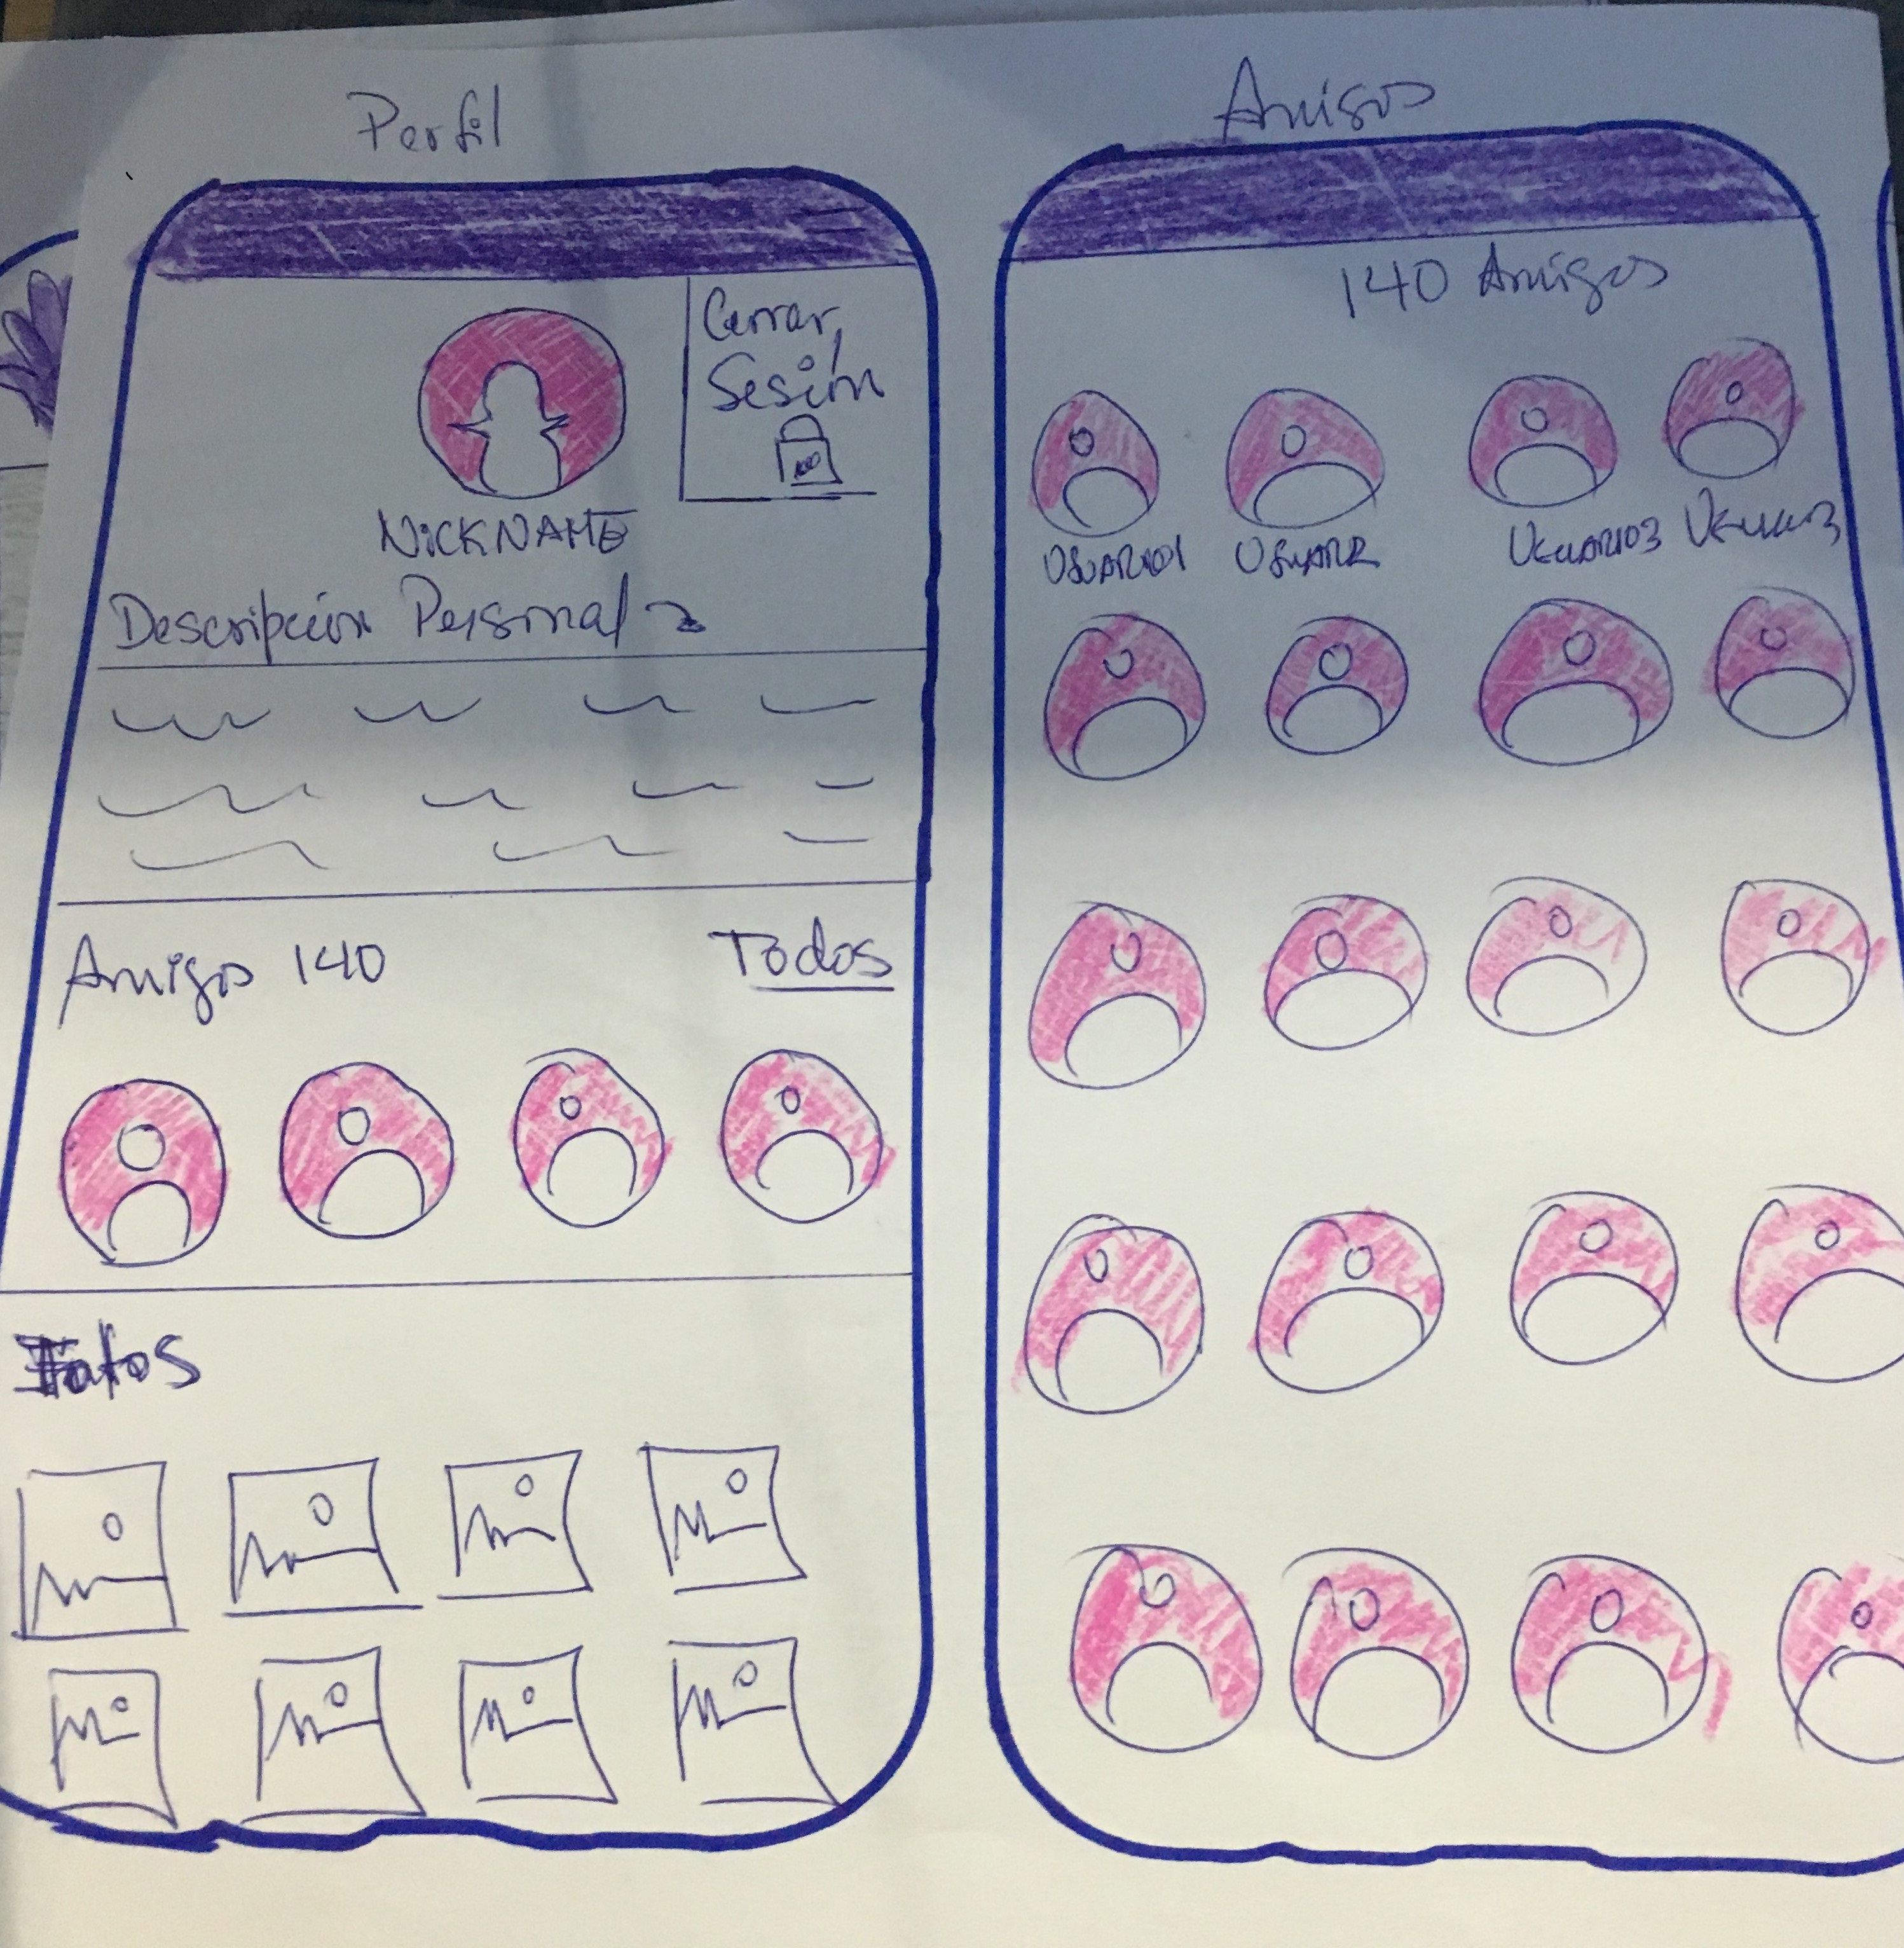 Perfil
Cerrar
Sesión
NICKNAME
Descripción Personal
Amigos 140
Todos
Fotos
Amigos
140 Amigos
USUARIO1
USUAR2
USUARIO3